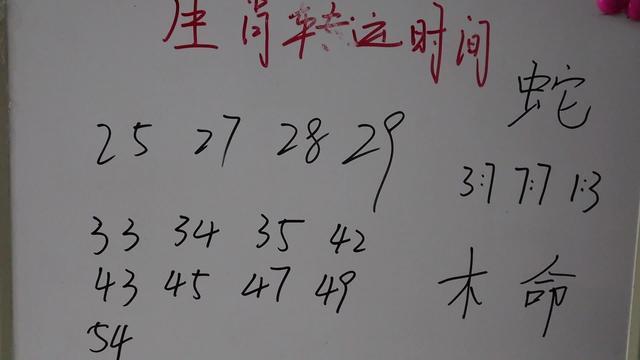 生肖转运时间
蛇
25 27 28 29
3:7 7:7 1:3
33 34 35 42
43 45 47 49
木命
54